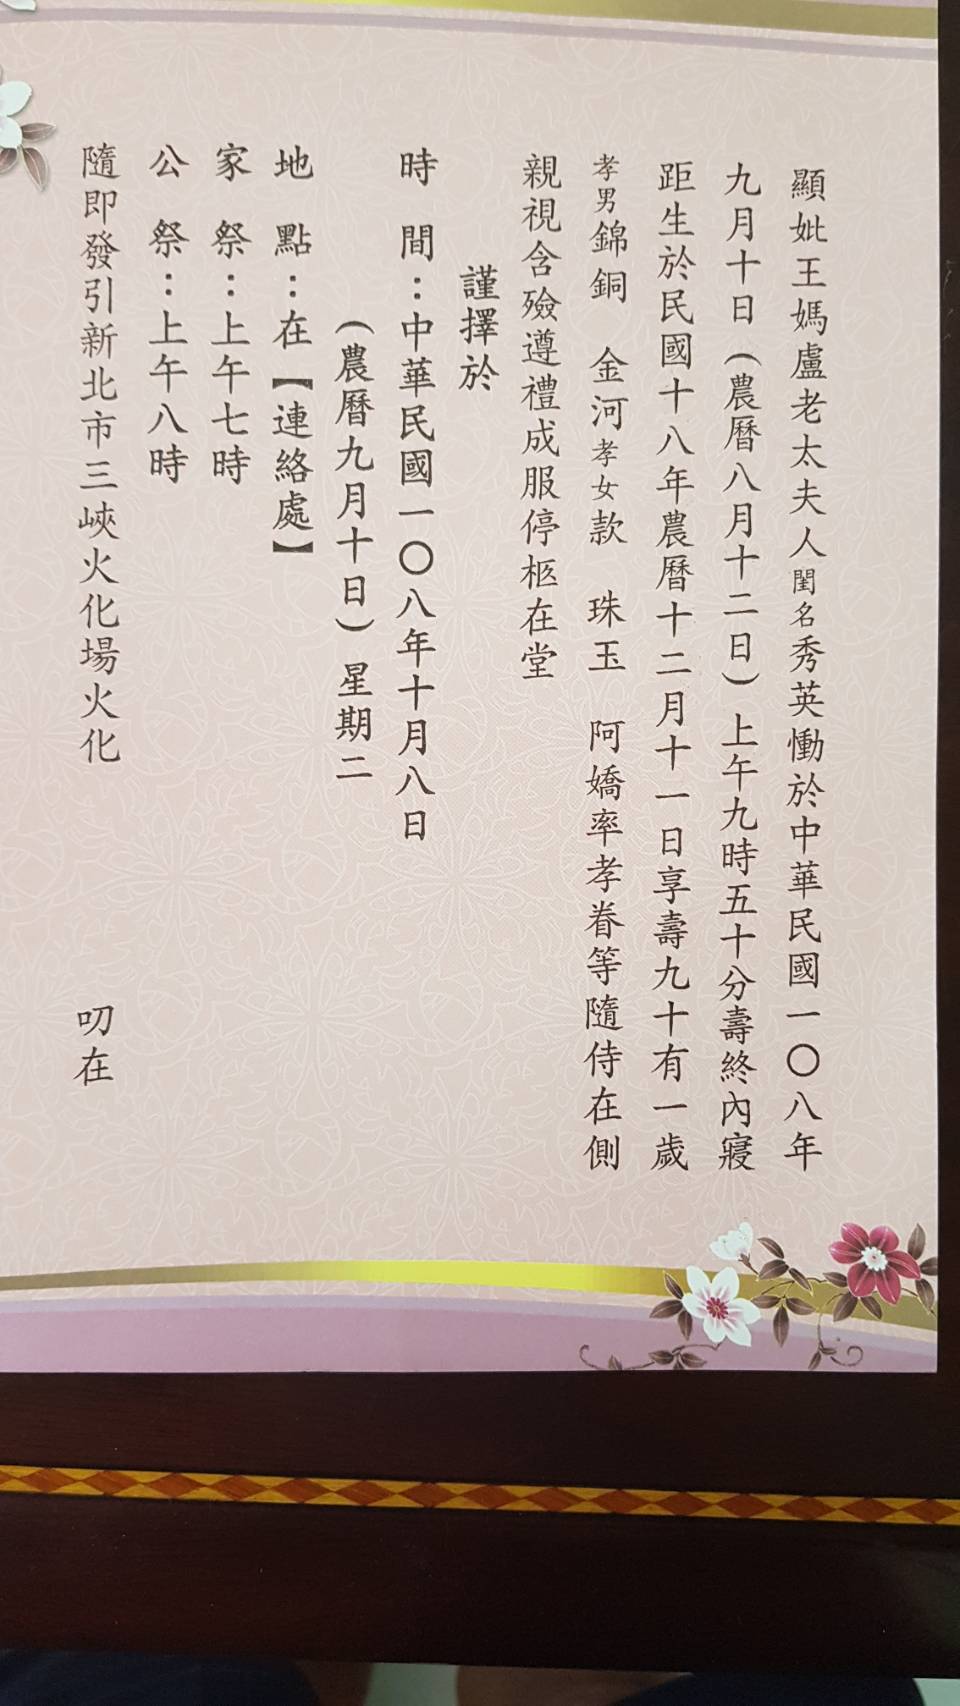 顯妣王媽盧老太夫人閨名秀英慟於中華民國一〇八年
九月十日（農曆八月十二日）上午九時五十分壽終內寢
距生於民國十八年農曆十二月十一日享壽九十有一歲
孝男錦銅　金河孝女款　珠玉　阿嬌率孝眷等隨侍在側
親視含殮遵禮成服停柩在堂
謹擇於
時　間：中華民國一〇八年十月八日
（農曆九月十日）星期二
地　點：在【連絡處】
家　祭：上午七時
公　祭：上午八時
隨即發引新北市三峽火化場火化　叨在